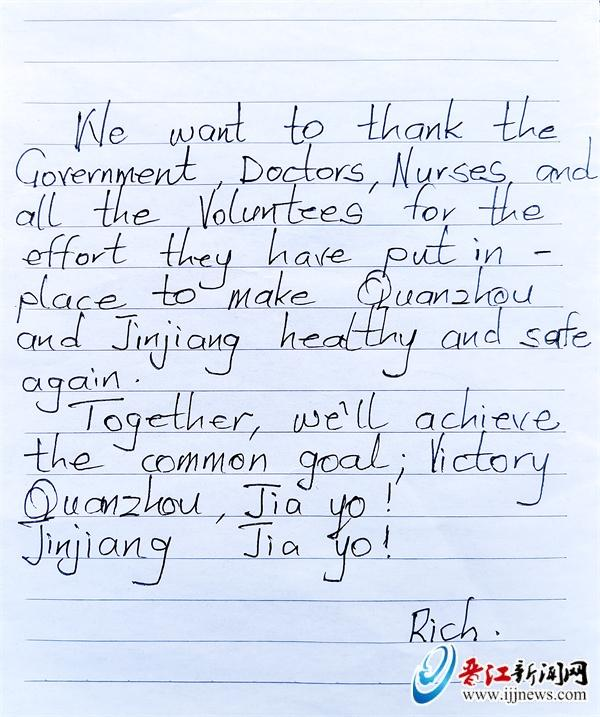 We want to thank the
Government, Doctors, Nurses, and
all the Voluntees for the
effort they have put in -
place to make Quanzhou
and Jinjiang healthy and safe
again.
Together, we'll achieve
the common goal; Victory
Quanzhou, Jia yo!
Jinjiang Jia yo!
Rich.
晋江新闻网
www.ijjnews.com